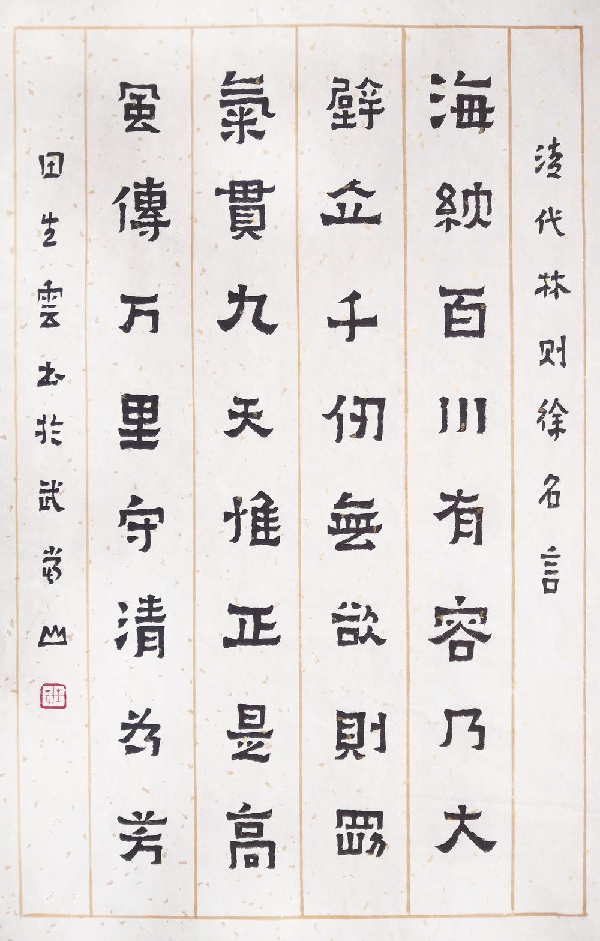 清代林则徐名言
海納百川有容乃大
壁立千仞無欲則剛
氣貫九天惟正是高
風傳万里守清為芳
田生雲书於武當山